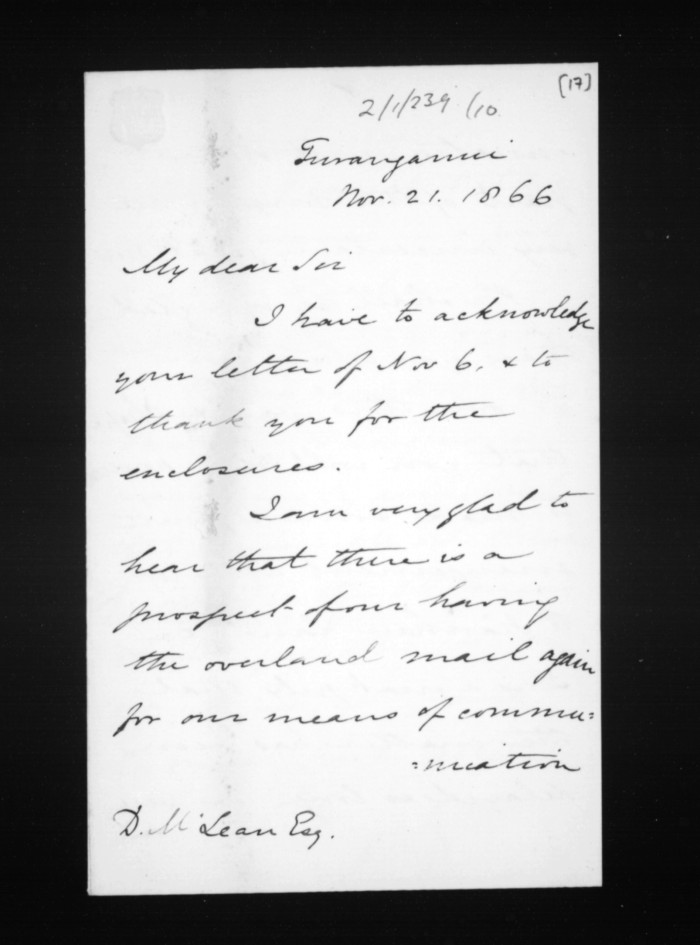 [17]
2/1/239 /10
Turanganui
Nov. 21. 1866
My dear Sir
I have to acknowledge
your letter of Nov 6. & to
thank you for the
enclosures.
I am very glad to
hear that there is a
prospect of our having
the overland mail again
for our means of commu=
=nication
D. McLean Esq.